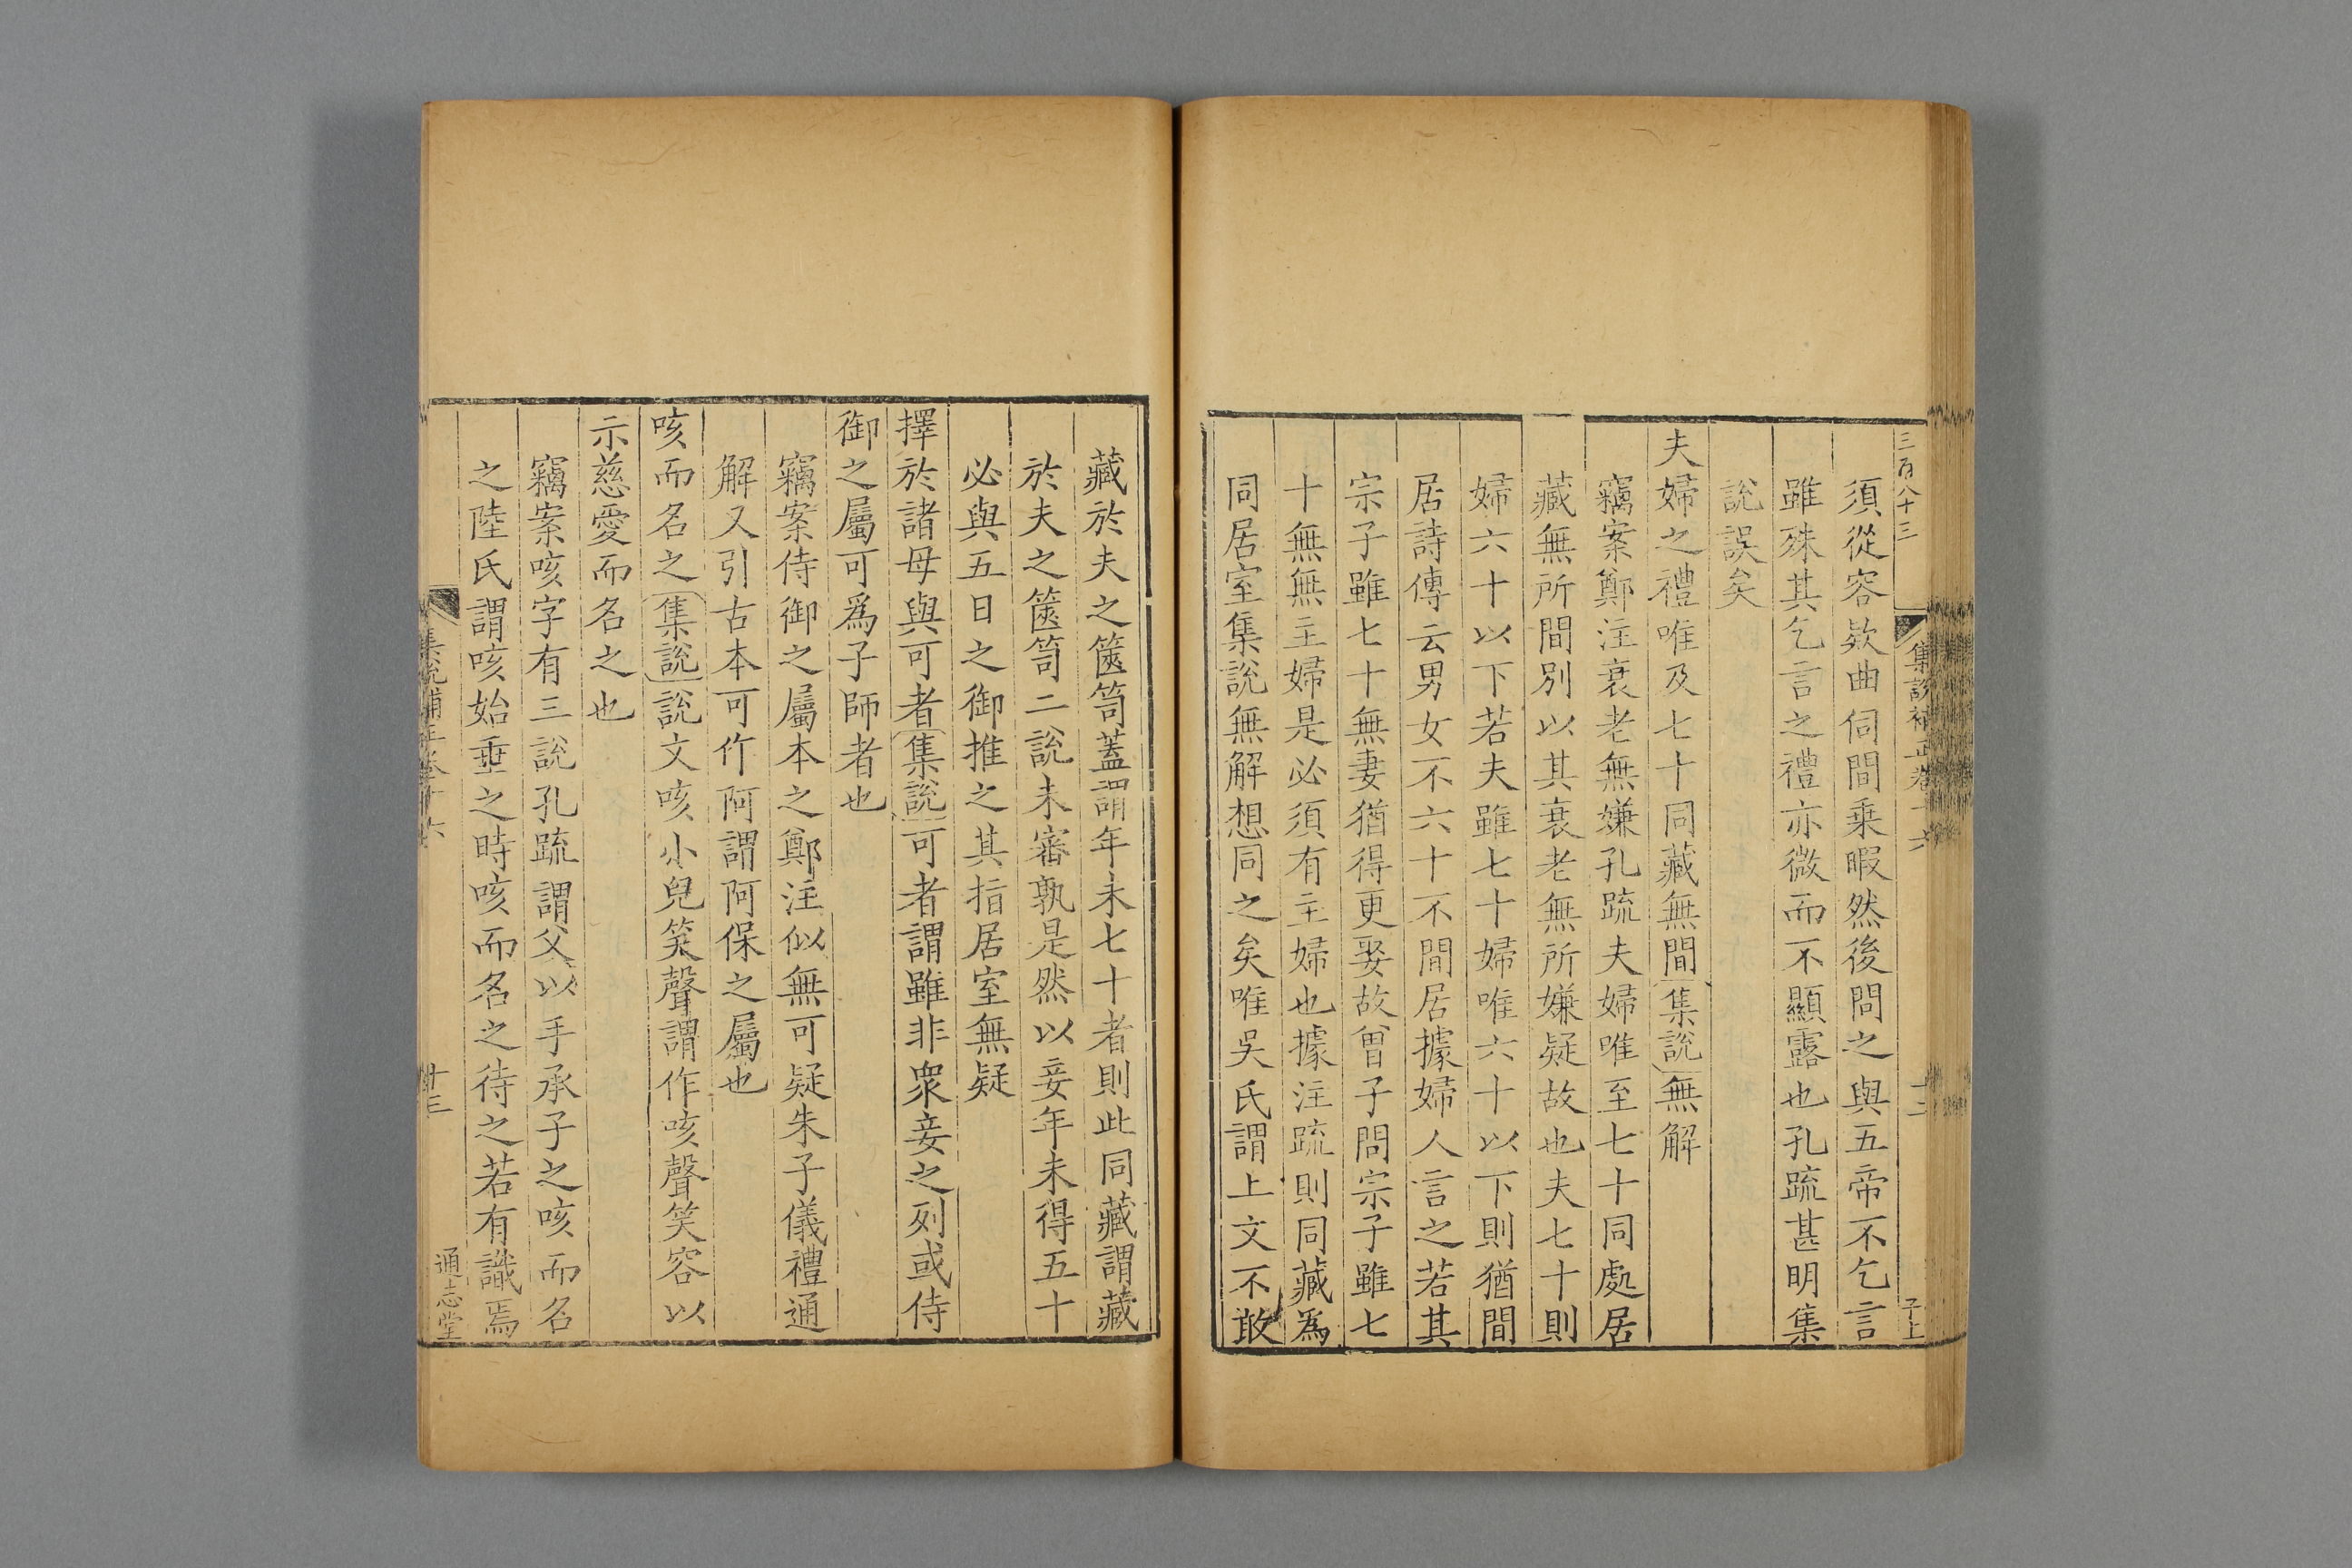 三百八十三
集說補正卷十六
十二
子上
須從容欵曲伺間乗暇然後問之與五帝不乞言
雖殊其乞言之禮亦微而不顯露也孔疏甚明集
說誤矣
夫婦之禮唯及七十同藏無間集說無解
竊案鄭注衰老無嫌孔疏夫婦唯至七十同處居
藏無所間別以其衰老無所嫌疑故也夫七十則
婦六十以下若夫雖七十婦唯六十以下則猶間
居詩傳云男女不六十不間居據婦人言之若其
宗子雖七十無妻猶得更娶故曾子問宗子雖七
十無無主婦是必須有主婦也據注疏則同藏為
同居室集說無解想同之矣唯吳氏謂上文不敢
藏於夫之篋笥蓋謂年未七十者則此同藏謂藏
於夫之篋笥二說未審孰是然以妾年未得五十
必與五日之御推之其指居室無疑
擇於諸母與可者集說可者謂雖非衆妾之列或侍
御之屬可爲子師者也
竊案侍御之屬本之鄭注似無可疑朱子儀禮通
解又引古本可作阿謂阿保之屬也
咳而名之集說說文咳小兒笑聲謂作咳聲笑容以
示慈愛而名之也
竊案咳字有三說孔疏謂父以手承子之咳而名
之陸氏謂咳始垂之時咳而名之待之若有識焉
集說補正卷十六
十三
通志堂